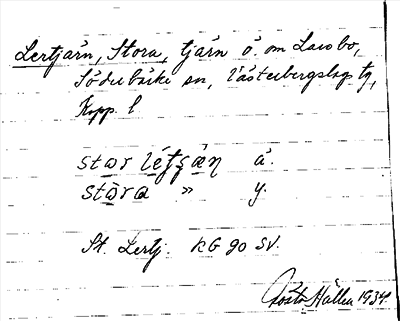 Lertjärn, Stora, tjärn ö. om Larsbo,
Söderbärke sn, Västerbergslags tg,
Kopp. l
star létʂæ̀n ä.
stòra " y.
St. Lertj. KG 90 SV.
Gösta Hällen 1934.